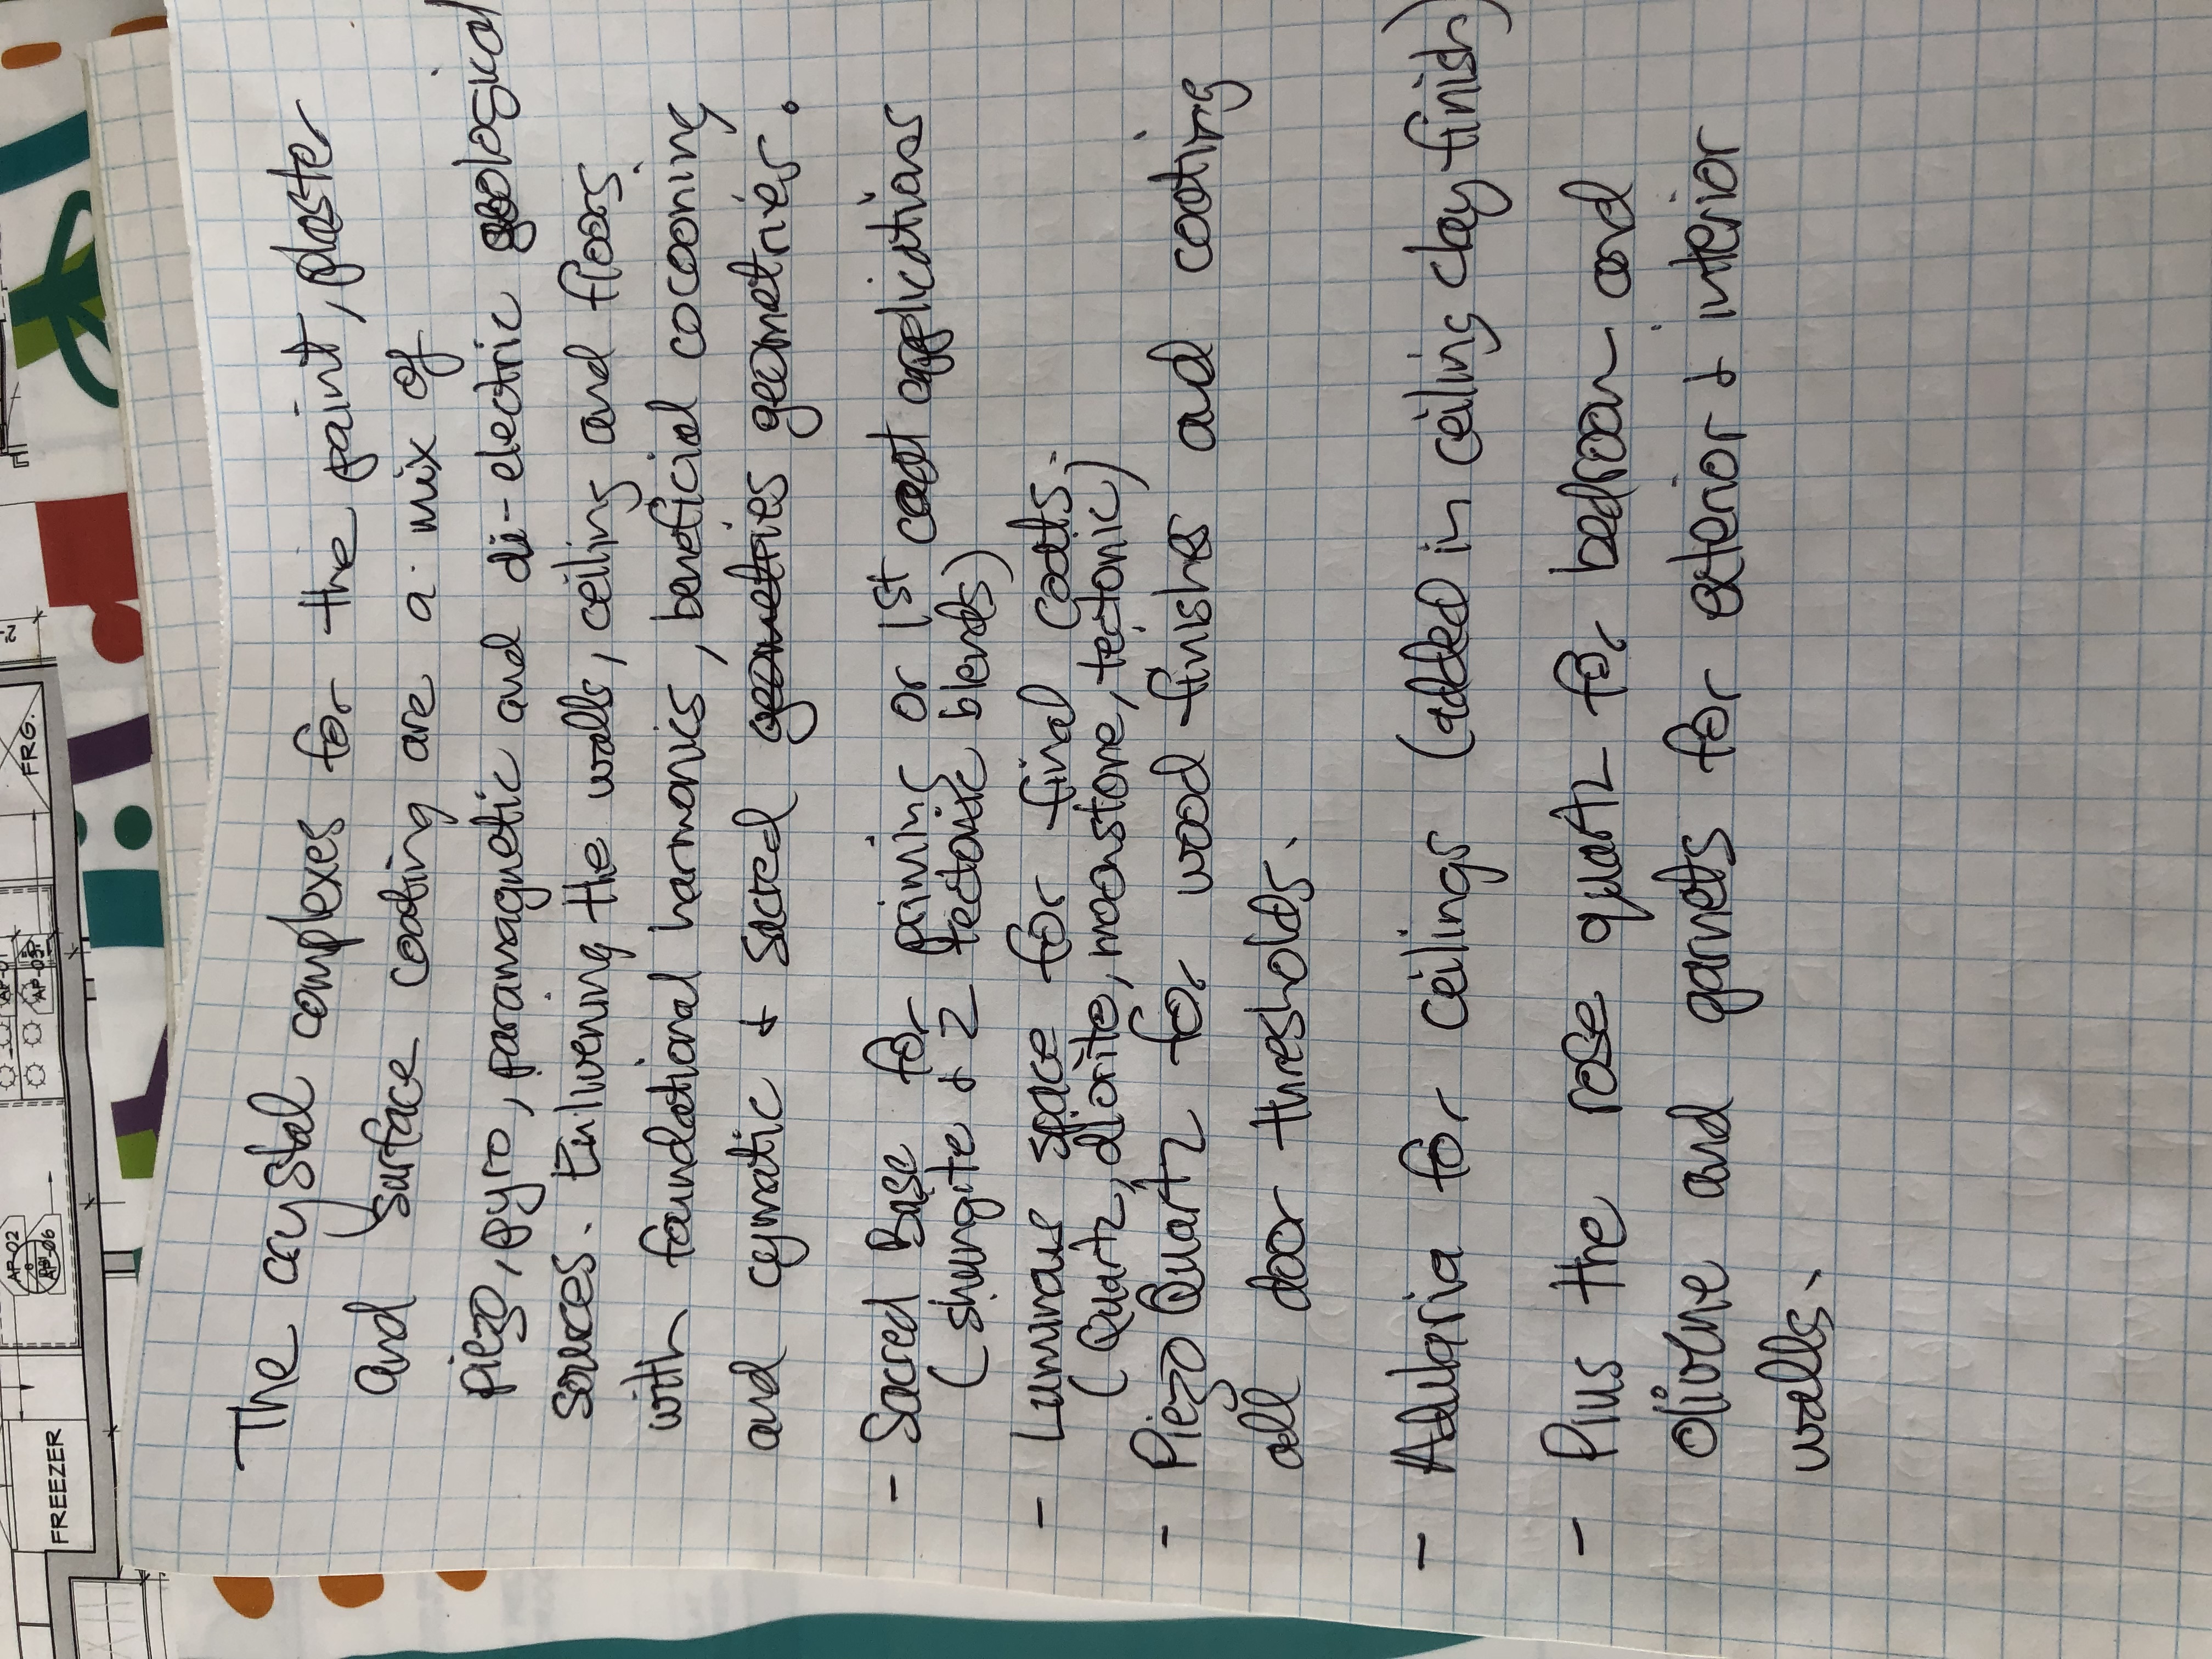 AP-02
AP-06
FREEZER
AP-03
FRG.
The crystal complexes for the paint, plaster
and surface coating are a mix of
piezo, pyro, paramagnetic and di-electric geological
sources. Enlivening the walls, ceiling and floors
with foundational harmonics, beneficial cocooning
and cymatic & sacred geometries geometries.
- Sacred Base for priming or 1st coat applications
(shungite & 2 tectonic blends)
- Luminous space for final coats.
(Quartz, diorite, moonstone, tectonic)
- Piezo Quartz for wood finishes and coating
all door thresholds.
- Adularia for ceilings (added in ceiling clay finish)
- Plus the rose quartz for bedroom and
olivine and garnets for exterior & interior
walls.